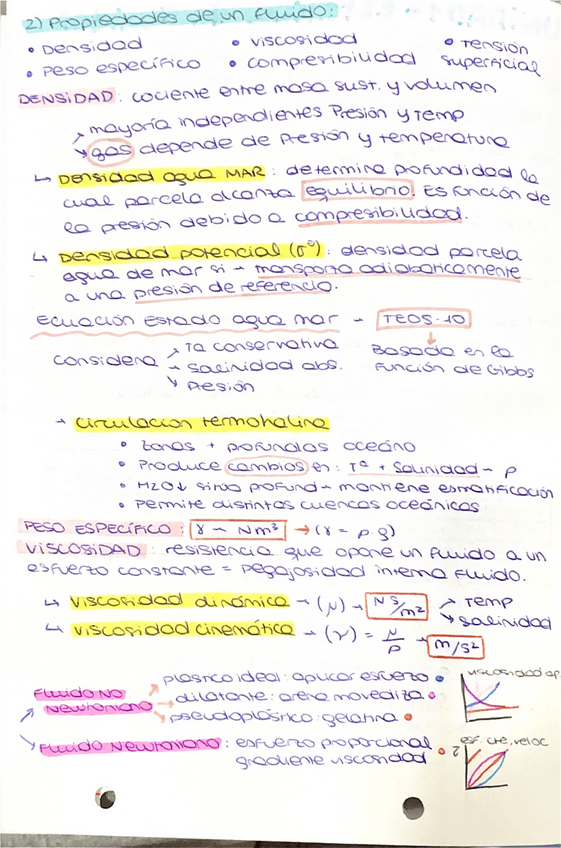 2) Propiedades de un fluido:
• Densidad • Viscosidad • Tensión
• Peso específico • Compresibilidad superficial
DENSIDAD: cociente entre masa sust. y volumen
↗ mayoría independientes Presión y Temp
↘ gas depende de Presión y temperatura
↳ Densidad agua MAR: determina profundidad la
cual parcela alcanza equilibrio. Es función de
la presión debido a compresibilidad.
↳ Densidad potencial (σ⁰): densidad parcela
agua de mar si → transporta adiabáticamente
a una presión de referencia.
Ecuación estado agua mar → TEOS-10
Considera ↗ Tª conservativa
→ Salinidad abs.
↘ Presión
↓
Basada en la
función de Gibbs
→ Circulación termohalina
• Zonas + profundas océano
• Produce cambios en: Tª + Salinidad → ρ
• H2O↓ situa profund → mantiene estratificación
• Permite distintos cuencas oceánicas
PESO ESPECÍFICO: γ → Nm³ → (γ = ρ g)
VISCOSIDAD: resistencia que opone un fluido a un
esfuerzo constante = pegajosidad interna fluido.
↳ Viscosidad dinámica → (μ) → NS/m² ↗ Temp
↘ Salinidad
↳ Viscosidad cinemática → (γ) = μ/ρ → m/s²
Fluido No
Newtoniano
↗ plástico ideal: aplicar esfuerzo •
→ dilatante: arena movediza •
↘ pseudoplástico: gelatina •
↘ Fluido Newtoniano: esfuerzo proporcional •
gradiente viscosidad
viscosidad ap.
esf. cte, veloc